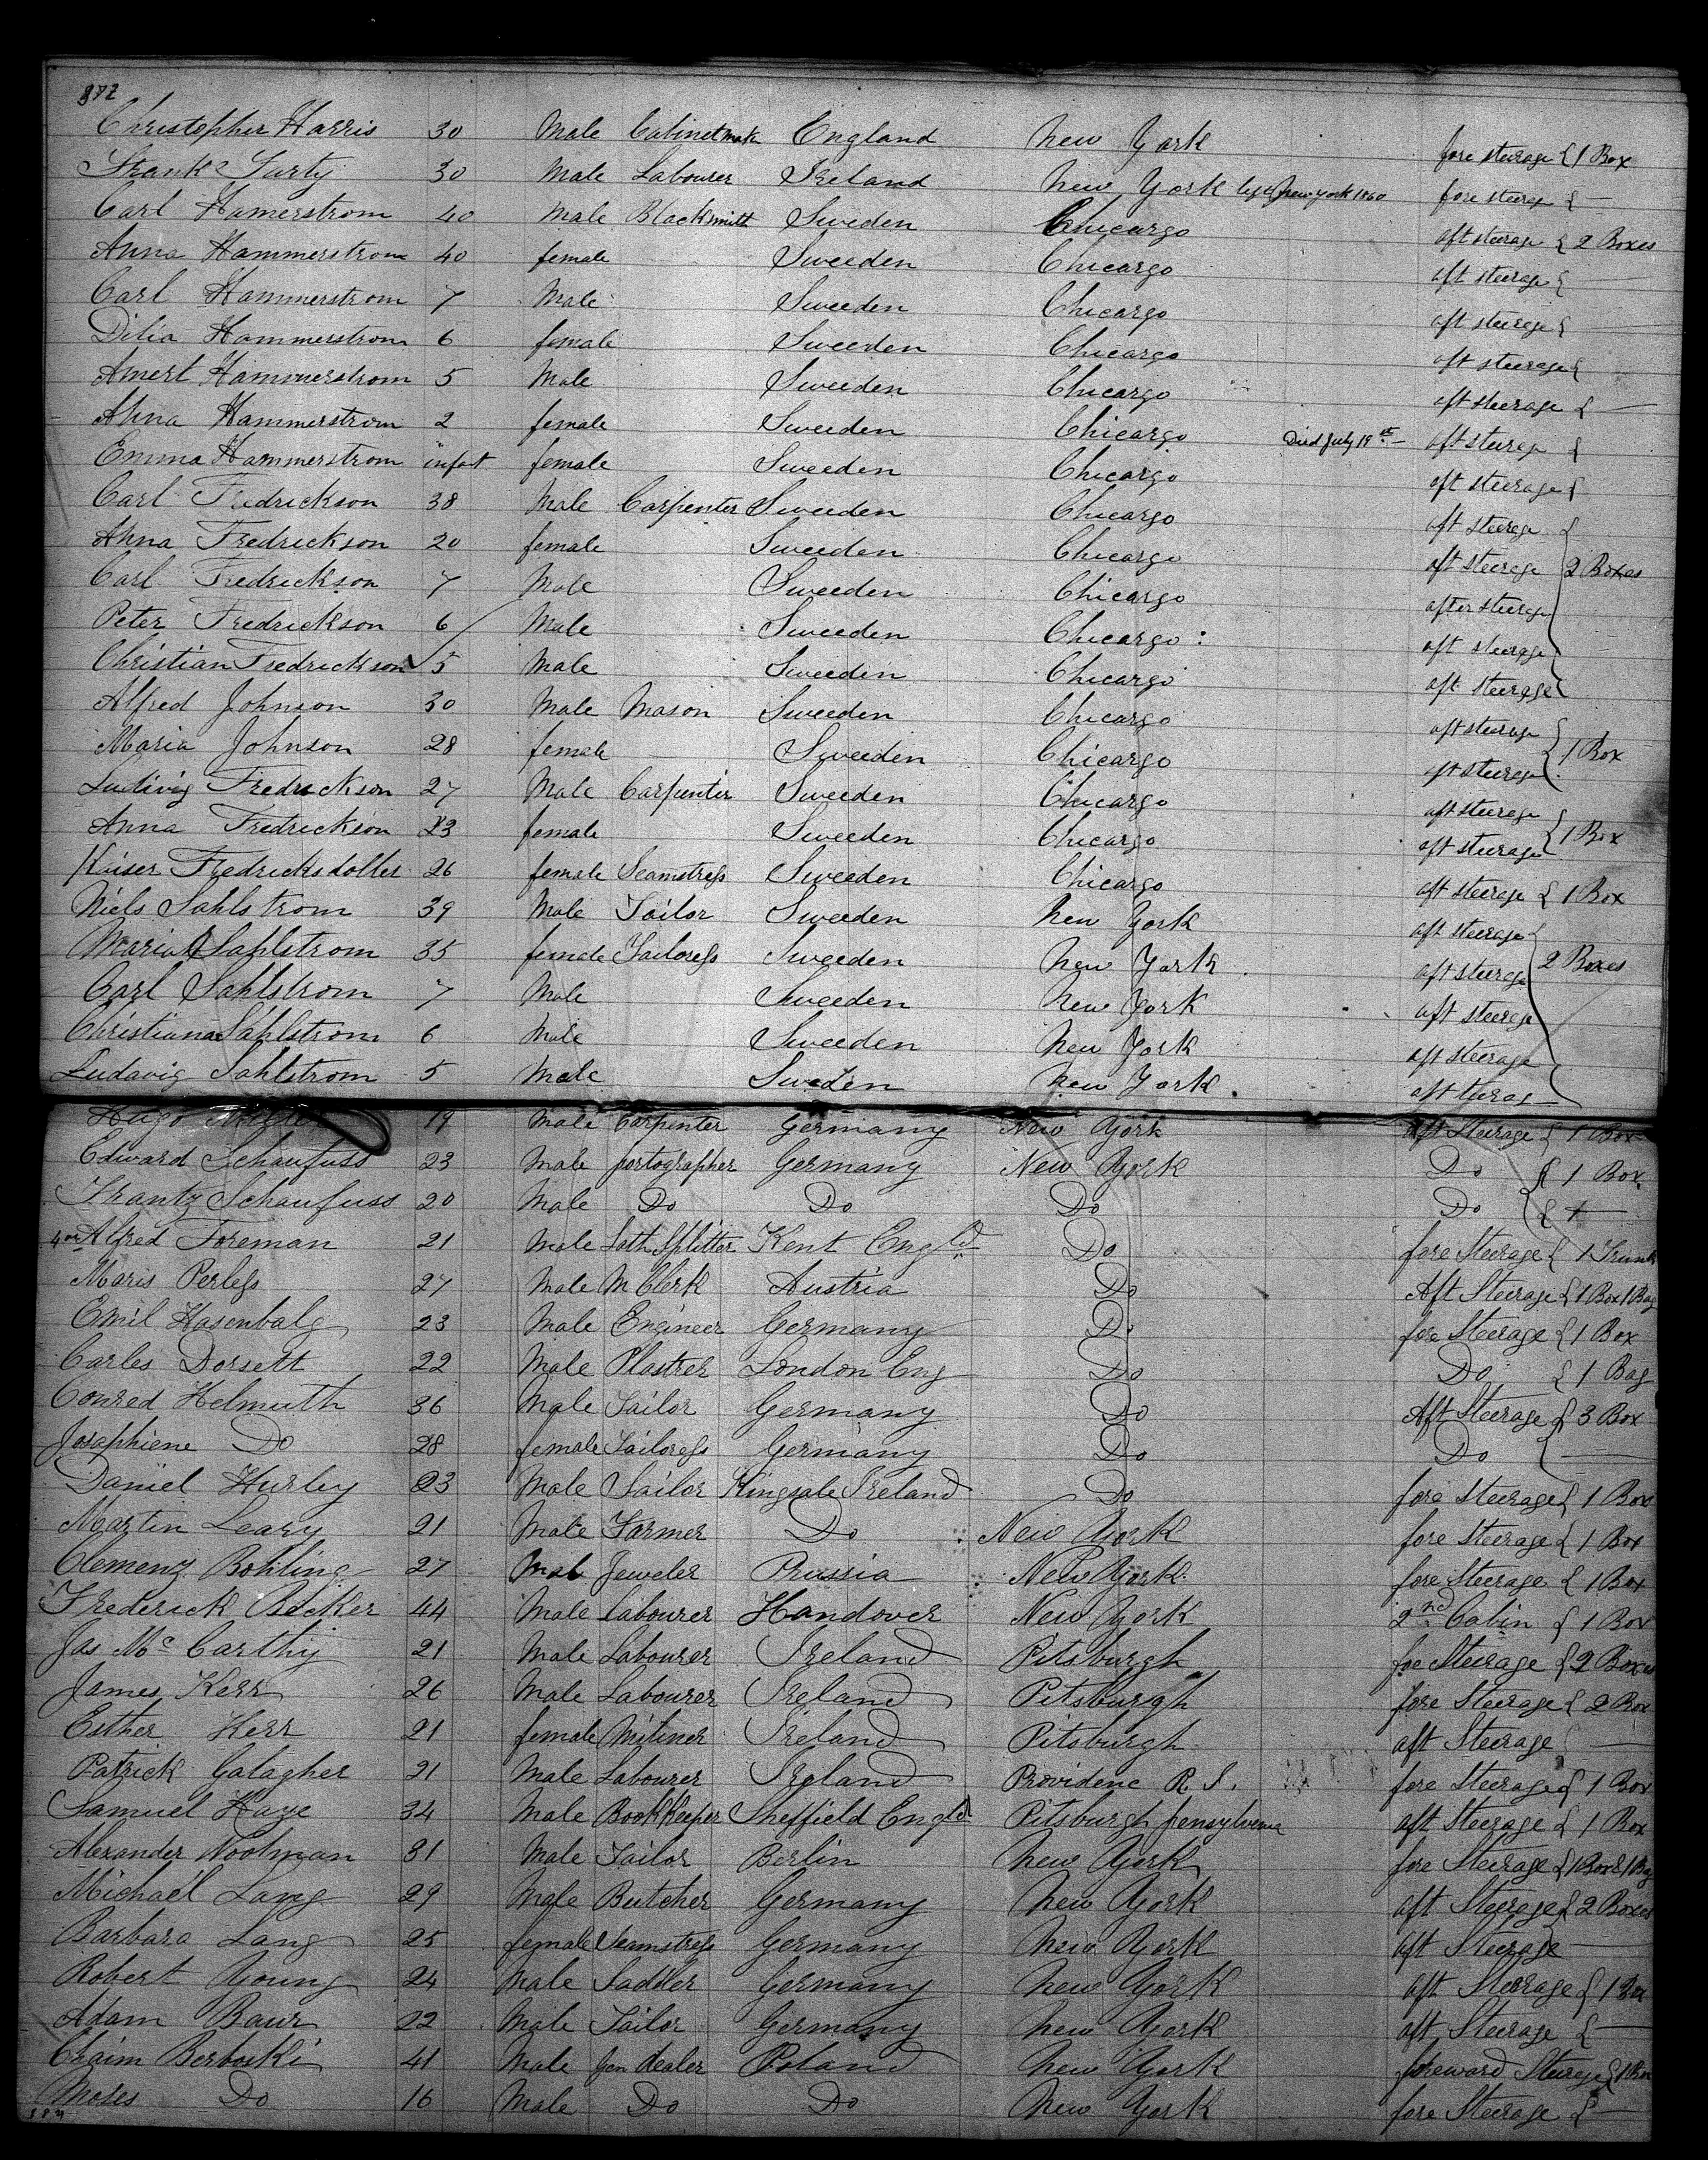 872
Christopher Harris 30 Male Cabinetmak England New York fore steerage { 1 Box
Frank 30 Male Labourer Ireland New York New York 1860 fore steerge {
Carl Hamerstrom 40 Male Blacksmith Sweden Chicargo aft steerage { 2 Boxes
Anna Hammerstrom 40 female Sweeden Chicargo aft steerage {
Carl Hammerstrom 7 Male Sweeden Chicargo aft steerage {
Dilia Hammerstrom 6 female Sweeden Chicargo aft steerage {
Amert Hammerstrom 5 Male Sweeden Chicargo aft steerage {
Ahna Hammerstrom 2 female Sweeden Chicargo Died July 19th aft steerage {
Emma Hammerstrom infant female Sweeden Chicargo aft steerage {
Carl Fredrickson 38 Male Carpenter Sweeden Chicargo aft steerage {
Ahna Fredrickson 20 female Sweeden Chicargo aft steerage 2 Boxes
Carl Fredrickson 7 Male Sweeden Chicargo after steerage
Peter Fredrickson 6 Male Sweeden Chicargo : aft steerage
Christian Fredrickson 5 Male Sweeden Chicargo aft steerage
Alfred Johnson 30 Male Mason Sweeden Chicargo aft steerage {
Maria Johnson 28 female Sweeden Chicargo aft steerage 1 Box
Ludivig Fredrickson 27 Male Carpenter Sweeden Chicargo aft steerage {
Anna Fredrickson 23 female Sweeden Chicargo aft steerage 1 Box
Kaiser Fredricksdotter 26 female Seamstress Sweeden Chicargo aft steerage { 1 Box
Niels Sahlstrom 39 Male Tailor Sweeden New York aft steerage {
Maria Sahlstrom 35 female Tailoress Sweeden New York aft steerage 2 Boxes
Carl Sahlstrom 7 Male Sweeden New York aft steerage
Christiana Sahlstrom 6 Male Sweeden New York aft steerage
Ludavig Sahlstrom 5 Male Sweden New York aft
Hugo 19 Male Carpenter Germany New York Aft Steerage { 1 Box
Edward Schaufuss 23 Male portographer Germany New York Do { 1 Box
Frantz Schaufuss 20 Male Do Do Do Do {
Alfred Foreman 21 Male Lath Splitter Kent Engld Do fore Steerage { 1 Trunk
Maris Perless 27 Male M Clerk Austria Do Aft Steerage { 1 Box 1 Bag
Emil Hasenbalg 23 Male Engineer Germany Do fore Steerage { 1 Box
Carles Dorsett 22 Male Plastrer London Eng Do Do { 1 Bag
Conred Helmuth 36 Male Tailor Germany Do Aft Steerage { 3 Box
Josaphiene Do 28 female Tailoress Germany Do Do {
Daniel Hurley 23 Male Sailor Kingsale Ireland Do fore Steerage { 1 Box
Martin Leary 21 Male Farmer Do New York fore Steerage { 1 Box
Clemenz Bohling 27 Mal Jeweler Prussia New York fore Steerage { 1 Box
Frederick Becker 44 Male Labourer Handover New York 2nd Cabin { 1 Box
Jas McCarthy 21 Male Labourer Ireland Pitsburgh foe Steerage { 2 Boxes
James Kerr 26 Male Labourer Ireland Pitsburgh fore Steerage { 2 Box
Esther Kerr 21 female Miliner Ireland Pitsburgh aft Steerage
Patrick Galagher 21 Male Labourer Ireland Providene R. I. fore Steerage { 1 Box
Samuel Haye 34 Male BookKeeper Sheffield Engld Pitsburgh pensylvenia aft Steerage { 1 Box
Alexander Woolman 31 Male Tailor Berlin New York fore Steerage { 1 Box & 1 Bag
Michael Lang 29 Male Butcher Germany New York aft Steerage { 2 Boxes
Barbara Lang 25 female Seamstress Germany New York aft Steerage
Robert Young 24 Male Saddler Germany New York aft Steerage { 1 Box
Adam Baur 22 Male Tailor Germany New York aft Steerage {
Chaim Berboski 41 Male dealer Poland New York foreward Steerage { 1 Box
Moses Do 16 Male Do Do New York fore Steerage {